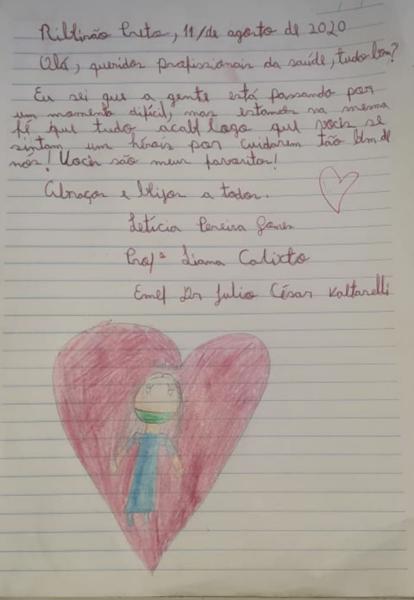 Ribeirão Preto, 11/de agosto de 2020
Olá, queridos profissionais da saúde, tudo bem?
Eu sei que a gente está passando por
um momento difícil, mas estamos na mesma
fé que tudo acabe logo que vocês se
sintam, um heróis por cuidarem tão bem de
nós! Vocês são meus favoritos!
Abraços e beijos a todos.
Letícia Pereira Gomes
Profª Liana Calixto
Emef Dr Julio César Voltarelli